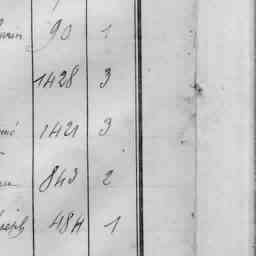 90 1
1428 3
1421 3
843 2
484 1